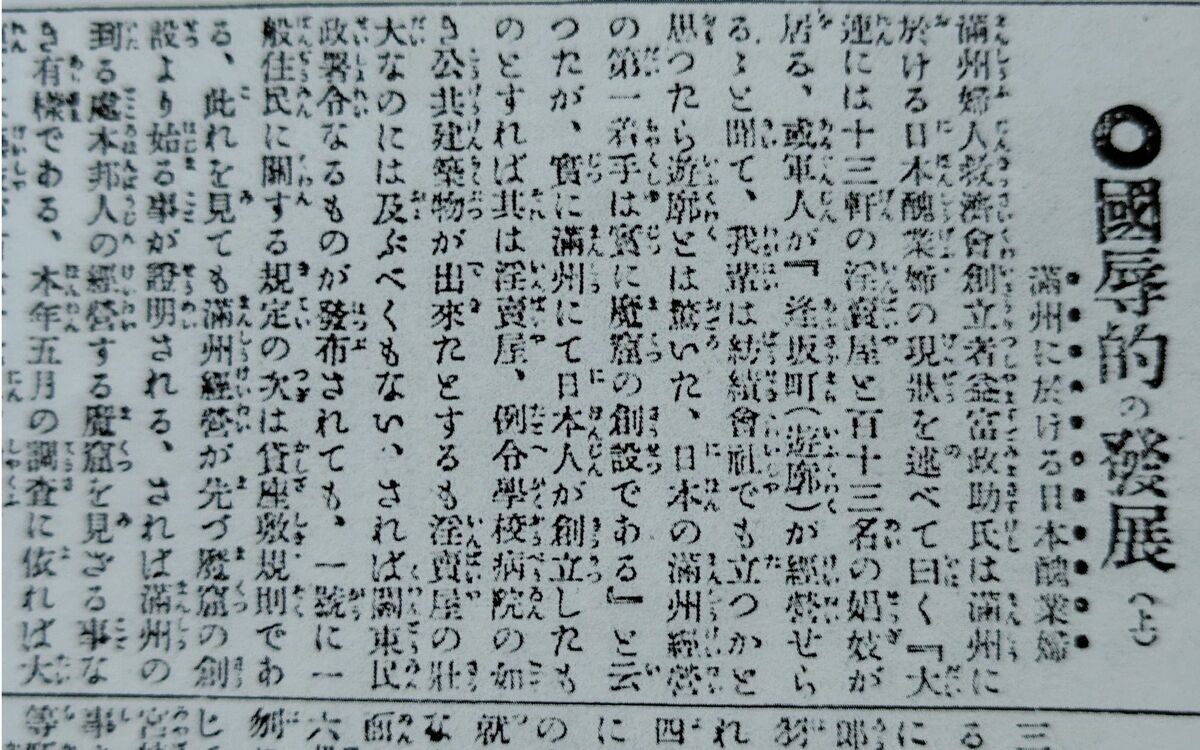 ◎國辱的の發展（上）
滿州に於ける日本醜業婦
滿州婦人救濟會創立者益富政助氏は滿州に
於ける日本醜業婦の現狀を述べて曰く『大
連には十三軒の淫賣屋と百十三名の娼妓が
居る、或軍人が『逢坂町（遊廓）が經營せら
る〻と聞て、我輩は紡績會社でも立つかと
思つたら遊廓とは驚いた、日本の滿州經營
の第一着手は實に魔窟の創設である』と云
つたが、實に滿州にて日本人が創立したも
のとすれば共は淫賣屋、例令學校病院の如
き公共建築物が出來たとするも淫賣屋の壯
大なのには及ぶべくもない、されば關東民
政署令なるものが發布されても、一號に一
般住民に關する規定の次は貸座敷規則であ
る、此れを見ても滿州經營が先づ魔窟の創
設より始る事が證明される、されば滿州の
到る處本邦人の經營する魔窟を見ざる事な
き有樣である、本年五月の調査に依れば大
三
る
に
郎
羽
れ
四
に
の
就
な
面
六
刎
じ
宮
事
等